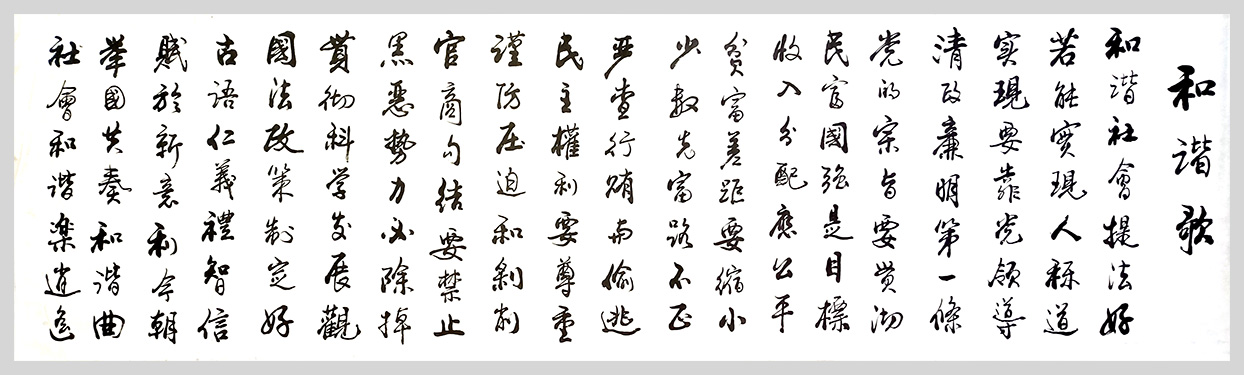 和谐歌
和谐社會提法好
若能實現人称道
实現要靠党领導
清政廉明第一條
党的宗旨要贯沏
民富國強是目標
收入分配應公平
贫富差距要缩小
少数先富路不正
严查行贿与偷逃
民主權利要尊重
謹防压迫和剝削
官商勾结要禁止
黑惡勢力必除掉
貫彻科学发展觀
國法政策制定好
古語仁義禮智信
賦於新意利今朝
举國共奏和谐曲
社會和谐樂逍遙